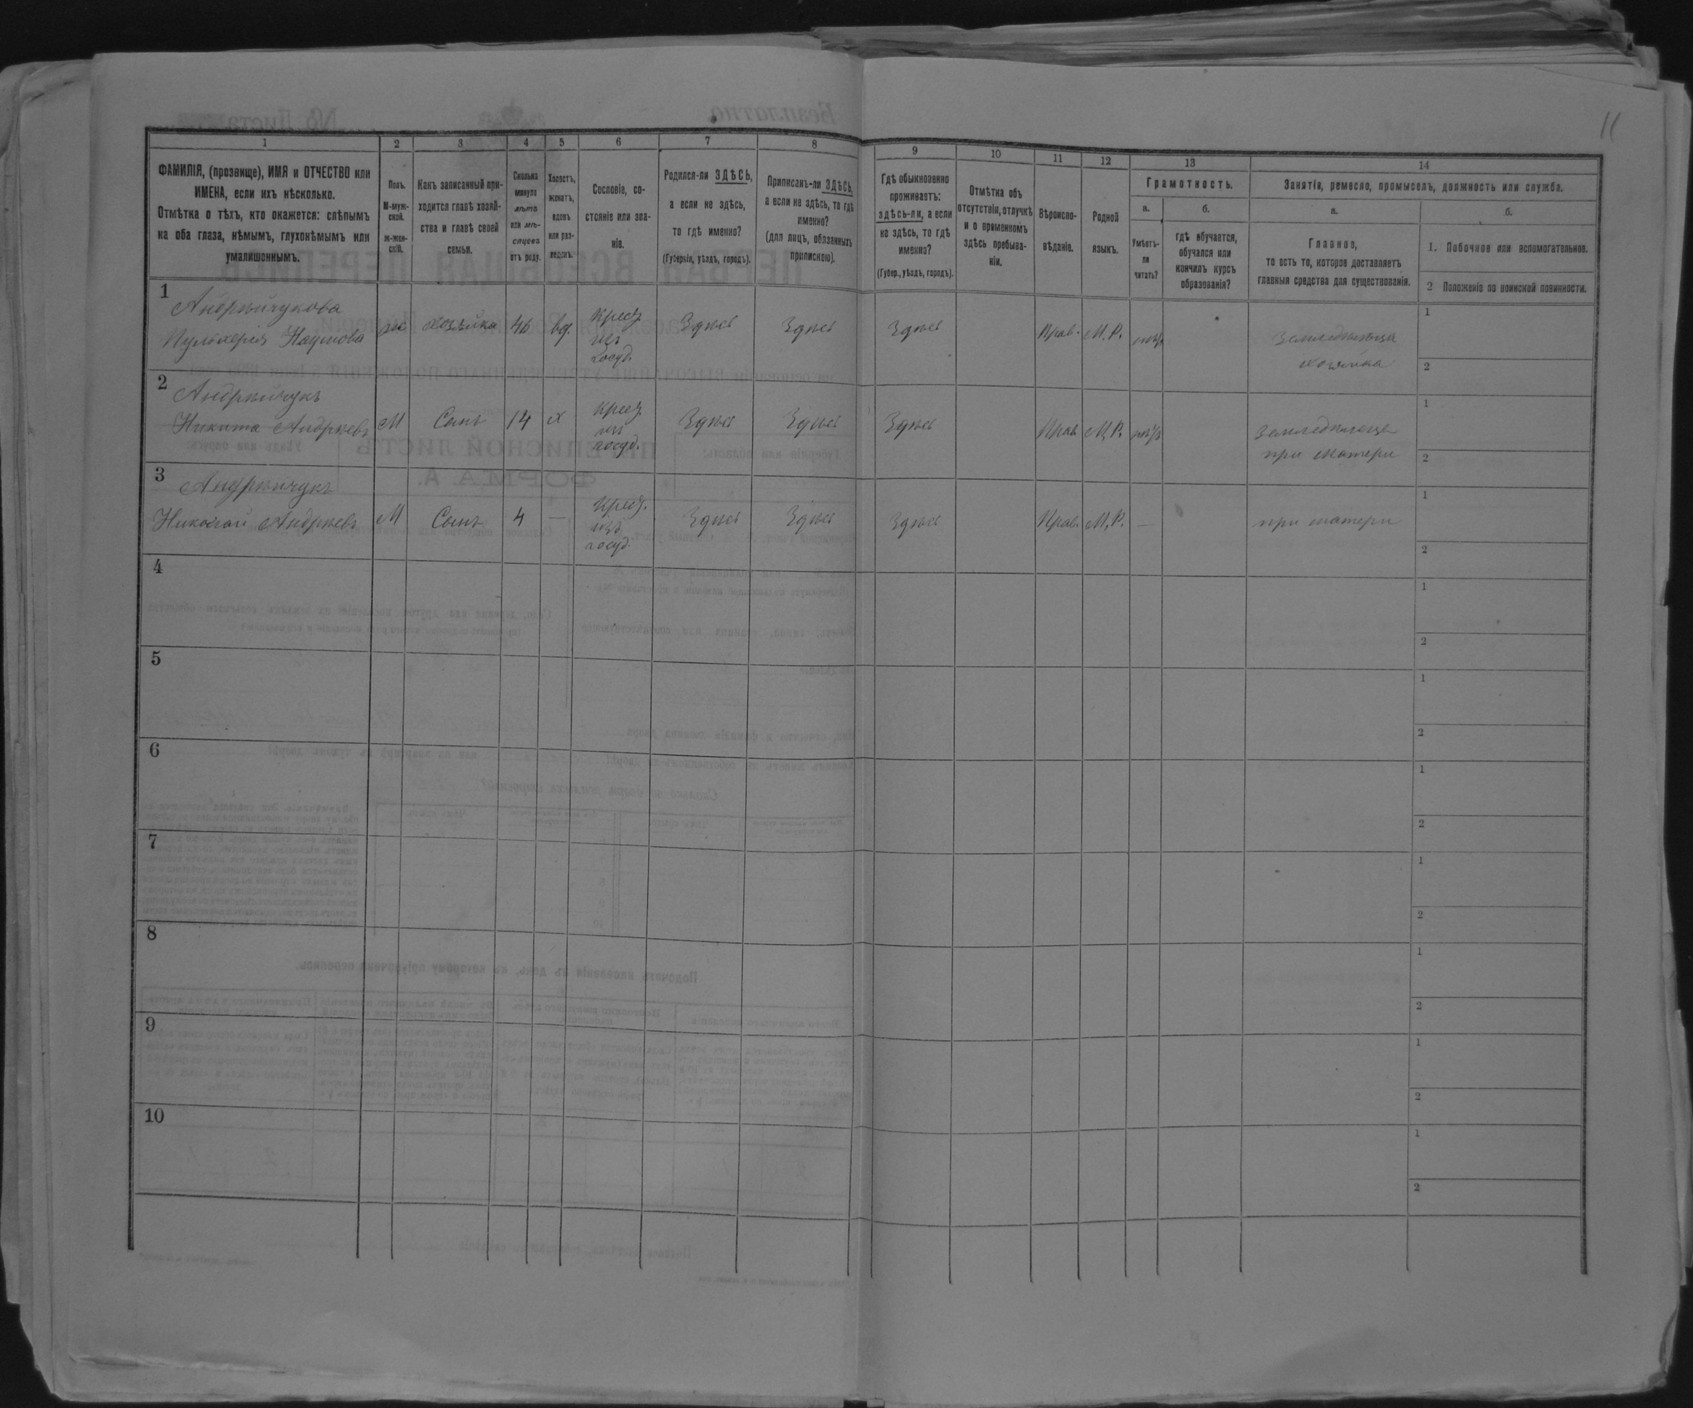 11
1 2 3 4 5 6 7 8 9 10 11 12 13 14
ФАМИЛІЯ, (прозвище), ИМЯ и ОТЧЕСТВО или
ИМЕНА, если ихъ нѣсколько.
Отмѣтка о тѣхъ, кто окажется: слѣпымъ
на оба глаза, нѣмымъ, глухонѣмымъ или
умалишоннымъ.
Полъ.
М-муж-
ской.
Ж-жен-
скій.
Какъ записанный при-
ходится главѣ хозяй-
ства и главѣ своей
семьи.
Сколько
минуло
лѣтъ
или мѣ-
сяцевъ
отъ роду.
Холостъ,
женатъ,
вдовъ
или раз-
веденъ.
Сословіе, со-
стояніе или зва-
ніе.
Родился-ли ЗДѢСЬ,
а если не здѣсь,
то гдѣ именно?
(Губернія, уѣздъ, городъ).
Приписанъ-ли ЗДѢСЬ,
а если не здѣсь, то гдѣ
именно?
(для лицъ, обязанныхъ
припискою).
Гдѣ обыкновенно
проживаетъ:
здѣсь-ли, а если
не здѣсь, то гдѣ
именно?
(Губер., уѣздъ, городъ).
Отмѣтка объ
отсутствіи, отлучкѣ
и о временномъ
здѣсь пребыва-
ніи.
Вѣроиспо-
вѣданіе.
Родной
языкъ.
Грамотность.
а.
Умѣетъ-
ли
читать?
б.
гдѣ обучается,
обучался или
кончилъ курсъ
образованія?
Занятія, ремесло, промыселъ, должность или служба.
а.
Главное,
то есть то, которое доставляетъ
главныя средства для существованія.
б.
1. Побочное или вспомогательное.
2 Положеніе по воинской повинности.
1
Андрѣйчукова
Пульхерія Наумова ж хозяйка 46 вд. Крест. изъ госуд. Здѣсь Здѣсь Здѣсь Прав. М. Р. Земледѣлица хозяйка
1
2
2
Андрѣйчукъ
Никита Андреевъ М Сынъ 14 х Крест. изъ госуд. Здѣсь Здѣсь Здѣсь Прав. М. Р. земледѣлецъ при матери
1
2
3
Андрѣйчукъ
Николай Андреевъ М Сынъ 4 — Крест. изъ госуд. Здѣсь Здѣсь Здѣсь Прав. М. Р. — при матери
1
2
4
1
2
5
1
2
6
1
2
7
1
2
8
1
2
9
1
2
10
1
2